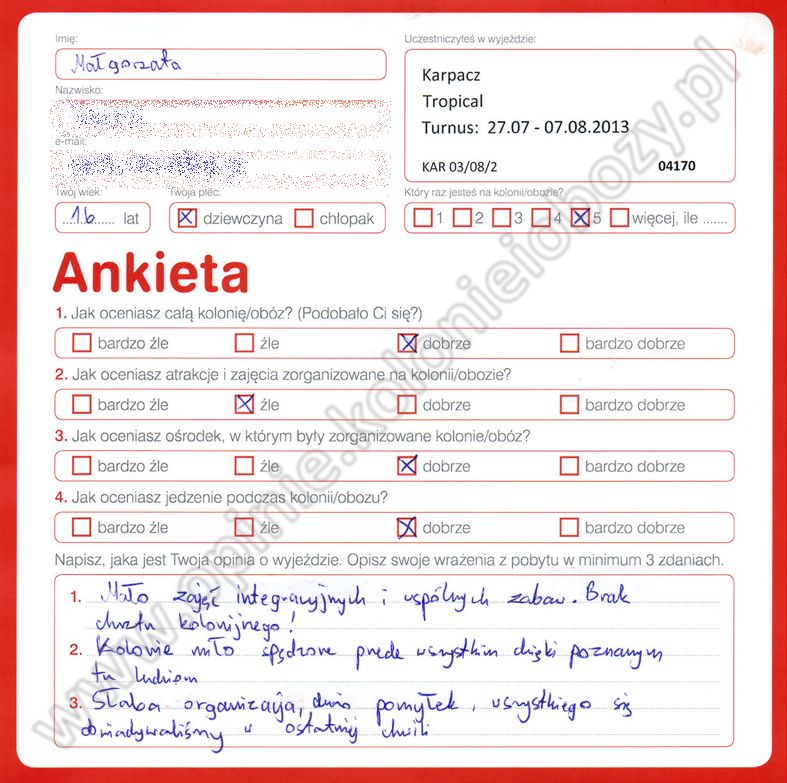 Imię:
Małgorzata
Uczestniczyłeś w wyjeździe:
Karpacz
Tropical
Turnus: 27.07 - 07.08.2013
KAR 03/08/2 04170
Nazwisko:
e-mail:
Twój wiek:
16 lat
Twoja płeć:
dziewczyna chłopak
Który raz jesteś na kolonii/obozie?
1 2 3 4 5 więcej, ile .......
Ankieta
1. Jak oceniasz całą kolonię/obóz? (Podobało Ci się?)
bardzo źle źle dobrze bardzo dobrze
2. Jak oceniasz atrakcje i zajęcia zorganizowane na kolonii/obozie?
bardzo źle źle dobrze bardzo dobrze
3. Jak oceniasz ośrodek, w którym były zorganizowane kolonie/obóz?
bardzo źle źle dobrze bardzo dobrze
4. Jak oceniasz jedzenie podczas kolonii/obozu?
bardzo źle źle dobrze bardzo dobrze
Napisz, jaka jest Twoja opinia o wyjeździe. Opisz swoje wrażenia z pobytu w minimum 3 zdaniach.
1. Mało zajęć integracyjnych i wspólnych zabaw. Brak
chrztu kolonijnego!
2. Kolonie miło spędzone przede wszystkim dzięki poznanym
tu ludziom
3. Słaba organizacja, dużo pomyłek, wszystkiego się
dowiadywaliśmy w ostatniej chwili
www.opinie.kolonieiobozy.pl